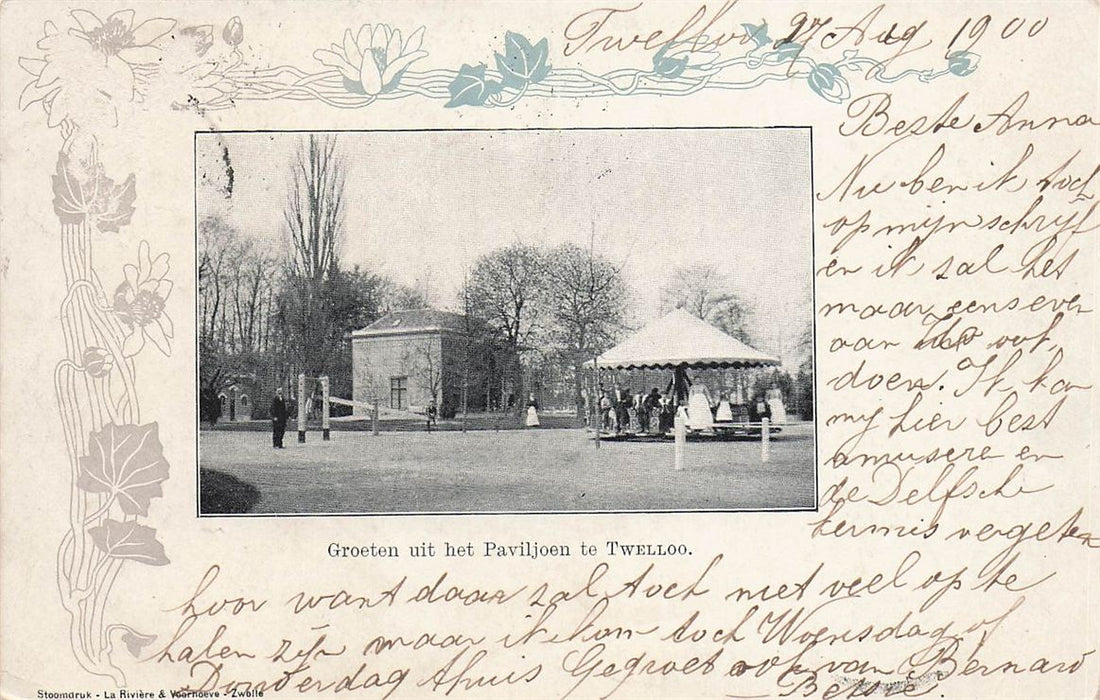 Twelloo 27 Aug 1900
Beste Anna
Nu ben ik toch
op mijn schrijf
en ik zal het
maar eens even
aan ook
doen. Ik kan
mij hier best
amusere en
de Delfsche
kermis vergeten
Groeten uit het Paviljoen te TWELLOO.
hoor want daar zal toch niet veel op te
halen zijn maar ik kom toch Woensdag of
Donderdag thuis Gegroet ook van Bernard
Stoomdruk - La Rivière & Voorhoeve - Zwolle